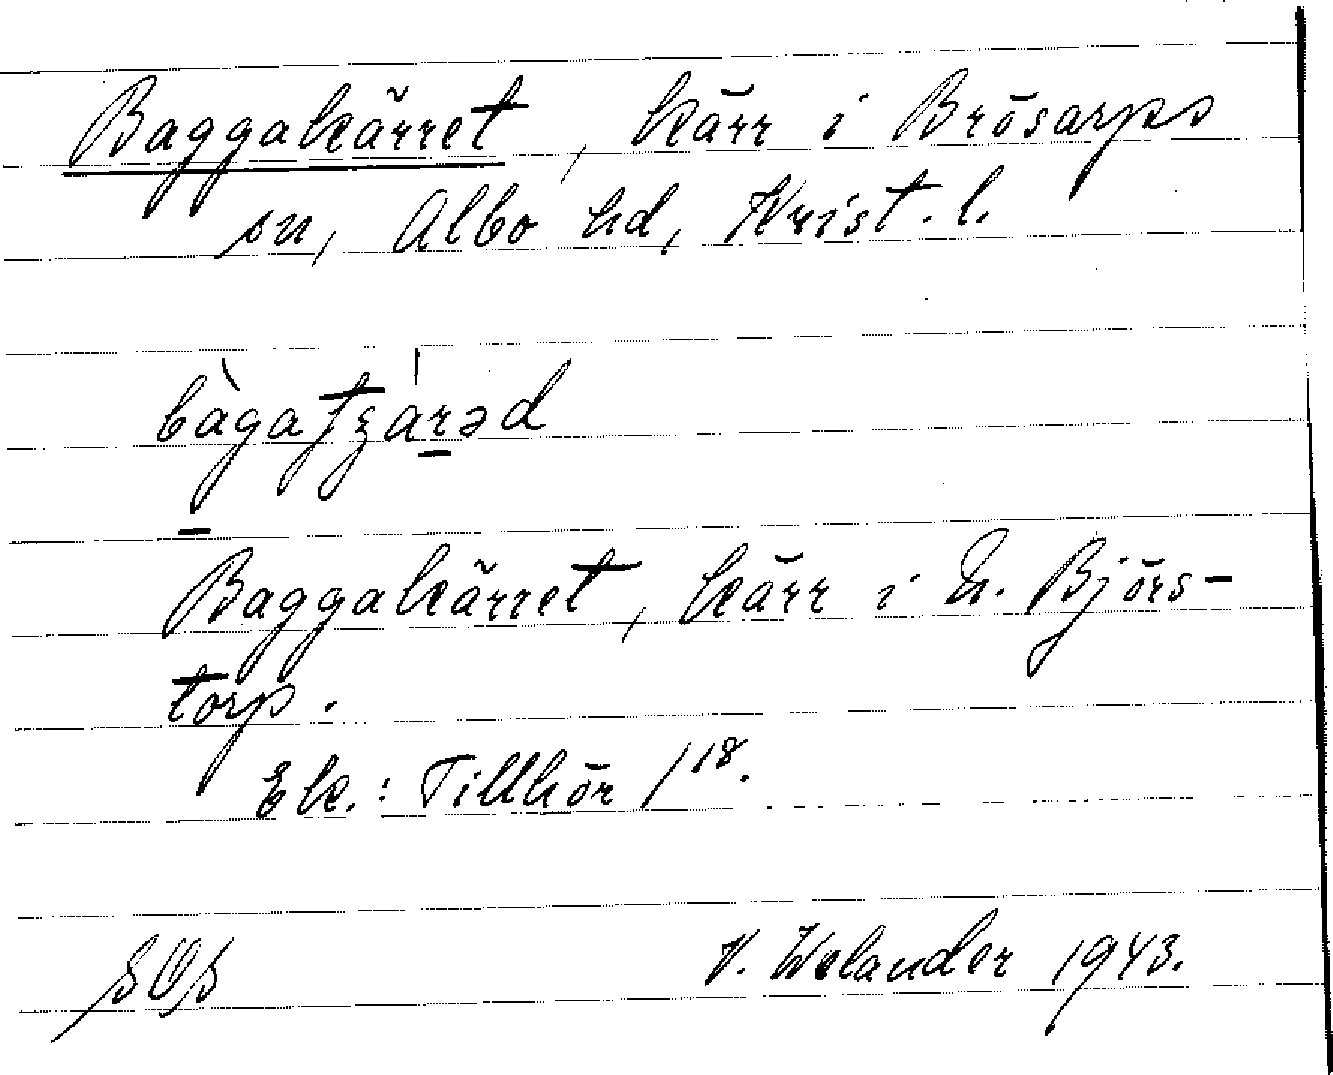 Baggakärret, kärr i Brösarps
sn, Albo hd, Krist. l.
Baggakärret, kärr i N. Björs-
torp.
Ek.: Tillhör 1 18.
V. Welander 1943.